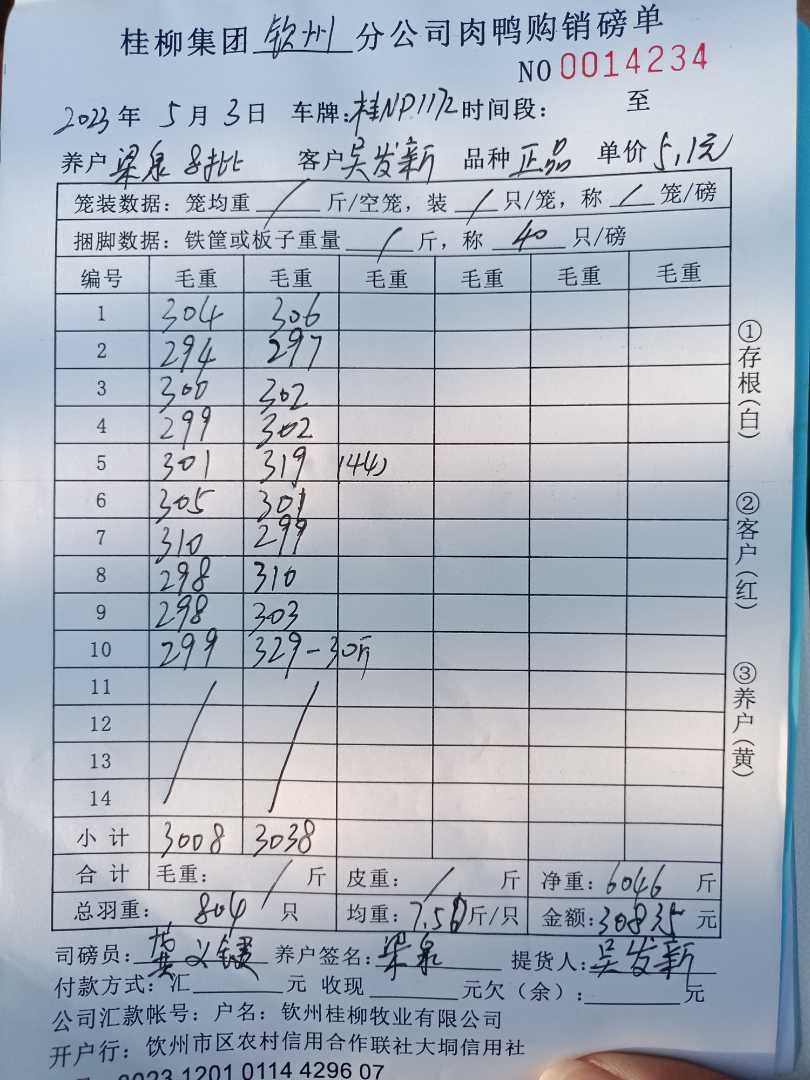 桂柳集团钦州分公司肉鸭购销磅单
NO 0014234
2023年 5月 3日 车牌:桂NP1172 时间段: 至
养户 梁泉 8批 客户 吴发新 品种 正品 单价 5.1元
笼装数据: 笼均重 / 斤/空笼, 装 / 只/笼, 称 / 笼/磅
捆脚数据: 铁筐或板子重量 / 斤, 称 40 只/磅
编号 毛重 毛重 毛重 毛重 毛重 毛重
1 304 306
2 294 297
3 300 302
4 299 302
5 301 319 (44)
6 305 301
7 310 299
8 298 310
9 298 303
10 299 329-30斤
11
12
13
14
小计 3008 3038
合计 毛重: / 斤 皮重: / 斤 净重: 6046 斤
总羽重: 804 只 均重: 7.5 斤/只 金额: 30835 元
司磅员: 黄义 养户签名: 梁泉 提货人: 吴发新
付款方式: 汇 元 收现 元欠(余): 元
公司汇款帐号: 户名: 钦州桂柳牧业有限公司
开户行: 钦州市区农村信用合作联社大垌信用社
0023 1201 0114 4296 07
①存根(白)
②客户(红)
③养户(黄)